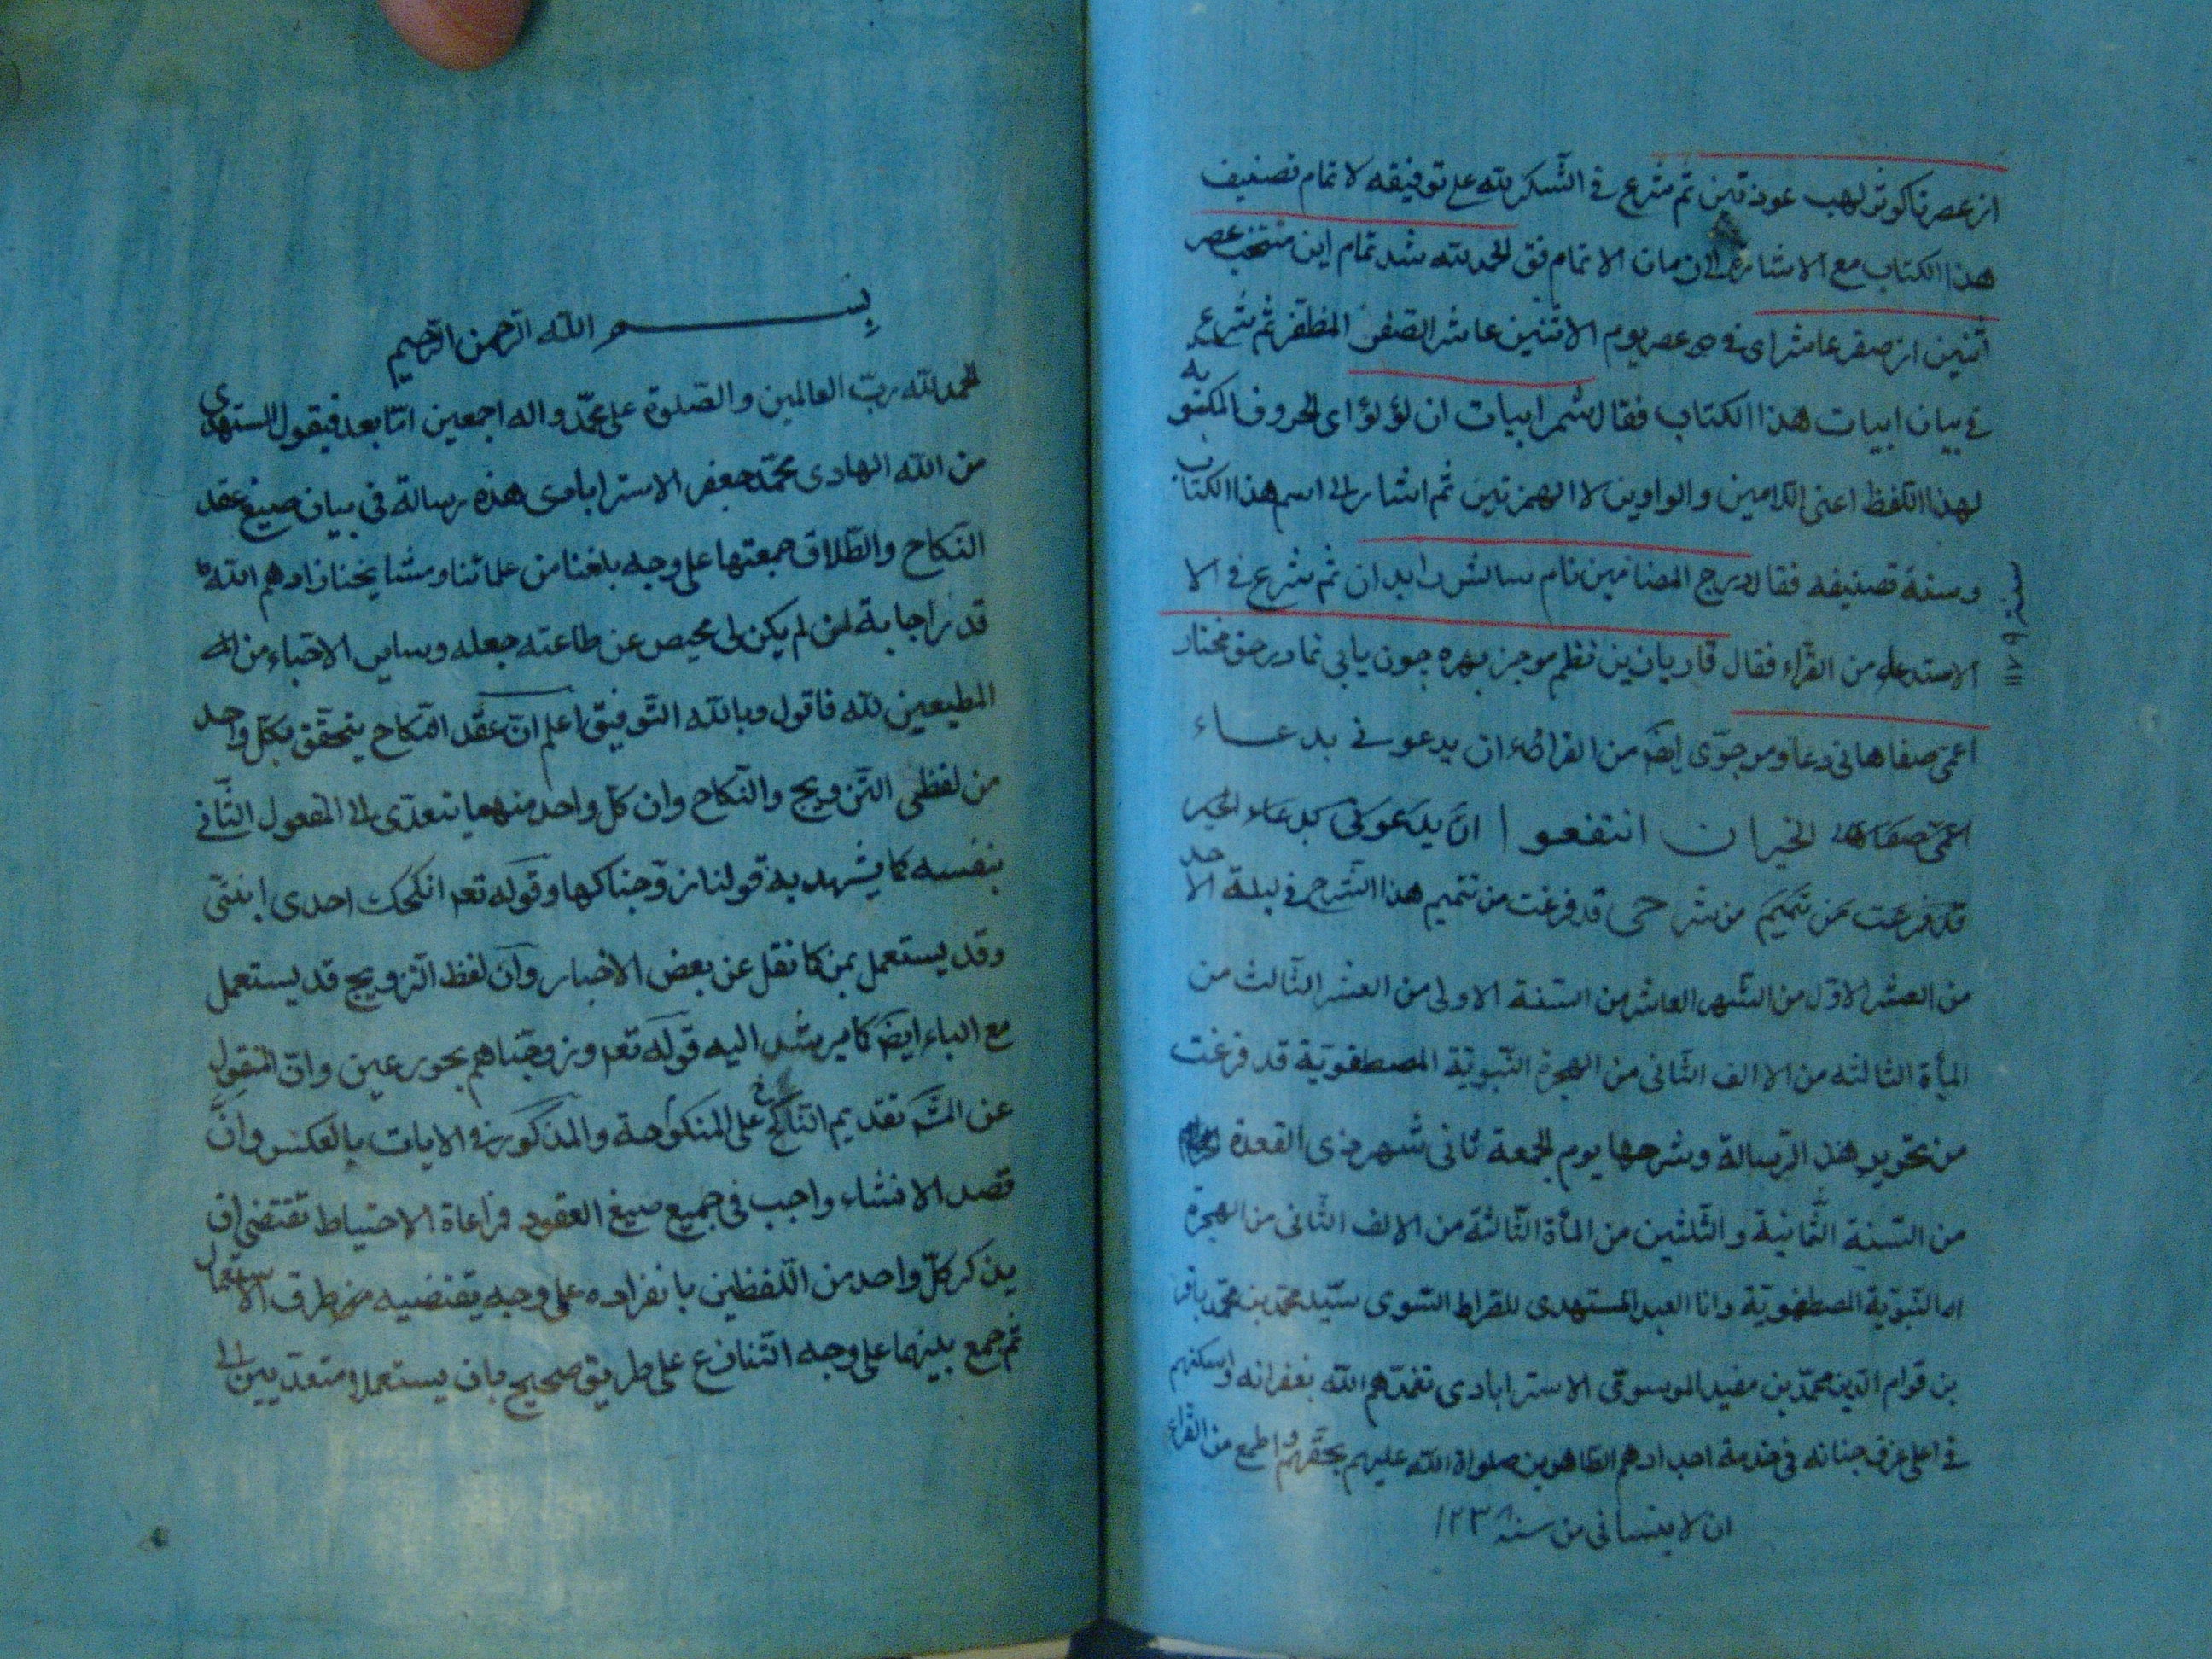 از عصر تا کوثر لهب عوذتین ثم شرع فی الشکر لله علی توفیقه لاتمام تصنیف
هذا الکتاب مع الاشارة الی زمان الاتمام فق الحمد لله شد تمام این منتخب عصر
اثنین از صفر عاشر ای فی عصر یوم الاثنین عاشر الصفر المظفر ثم شرع
فی بیان ابیات هذا الکتاب فقال شمر ابیات ان لؤلؤ ای الحروف المکتوبه
لهذا اللفظ اعنی اللامین والواوین لا الهمزتین ثم اشار الی اسم هذا الکتاب
وسنة تصنیفه فقال درج المضامین نام سالش را بدان ثم شرع فی الا
الاستدعاء من القراء فقال قاریان زین نظم موجز بهره چون یابی نما در حق مختار
اعمی صفاهانی دعا ومرجوی ایضا من القراء ان یدعونی بدعاء
اعمی صفاهانی الخیر ان انتفعوا ان یدعونی بدعاء الخیر
قد فرغت من تتمیم من شرحی قد فرغت من تتمیم هذا الشرح فی لیلة الاحد
من العشر الاول من الشهر العاشر من السنة الاولی من العشر الثالث من
المأة الثالثه من الالف الثانی من الهجرة النبویة المصطفویة قد فرغت
من تحریر هذه الرسالة وشرحها یوم الجمعة ثانی شهر ذی القعدة الحرام
من السنة الثمانیة والثلثین من المأة الثالثة من الالف الثانی من الهجرة
النبویة المصطفویة وانا العبد المستهدی للصراط السوی سید محمد بن محمد باقر
بن قوام الدین محمد بن مفید الموسوی الاسترابادی تغمدهم الله بغفرانه واسکنهم
فی اعلی غرف جنانه فی خدمة اجدادهم الطاهرین صلواة الله علیهم بحقهم واطمع من القراء
ان لا ینسانی من سنة ۱۲۳۸
سنه ۱۱۷۹
بسم الله الرحمن الرحیم
الحمد لله رب العالمین والصلوة علی محمد واله اجمعین اما بعد فیقول المستهدی
من الله الهادی محمد جعفر الاسترابادی هذه رسالة فی بیان صیغ عقد
النکاح والطلاق جمعتها علی وجه بلغنا من علمائنا ومشایخنا زادهم الله
قدرا اجابة لمن لم یکن لی محیص عن طاعته جعله وسایر الاحباء من الله
المطیعین لله فاقول وبالله التوفیق اعلم ان عقد النکاح یتحقق بکل واحد
من لفظی التزویج والنکاح وان کل واحد منهما یتعدی الی المفعول الثانی
بنفسه کما یشهد به قولنا زوجناکها وقوله تعه انکحک احدی ابنتی
وقد یستعمل بمن کما نقل عن بعض الاخبار وان لفظ التزویج قد یستعمل
مع الباء ایضا کما یرشد الیه قوله تعه وزوجناهم بحور عین وان المنقول
عن المشه تقدیم الناکح علی المنکوحة والمذکور فی الایات بالعکس وان
قصد الانشاء واجب فی جمیع صیغ العقود ومراعاة الاحتیاط تقتضی ان
یذکر کل واحد من اللفظین بانفراده علی وجه یقتضیه من طرف الاستعمال
ثم جمع بینهما علی وجه التنازع علی طریق صحیح بان یستعملا متعدیین الی